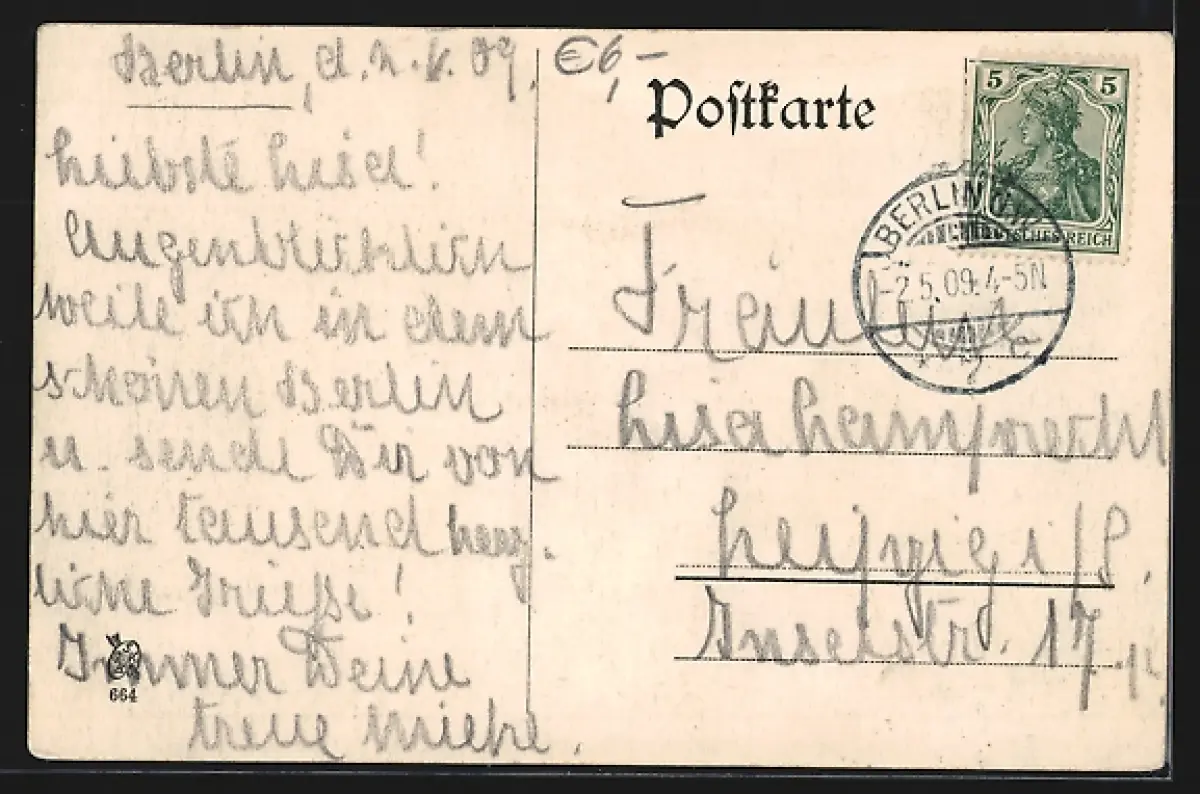 Berlin, d. 2. V. 09.
Liebste Lisa!
Augenblicklich
weile ich in dem
schönen Berlin
u. sende Dir von
hier tausend herz-
liche Grüße!
Immer Deine
treue Mieke.
664
€6,-
Postkarte
5 5
DEUTSCHES REICH
BERLIN
-2.5.09.4-5N
c
Fräulein
Lisa Lamprecht
Leipzig i/S.
Inselstr. 17.